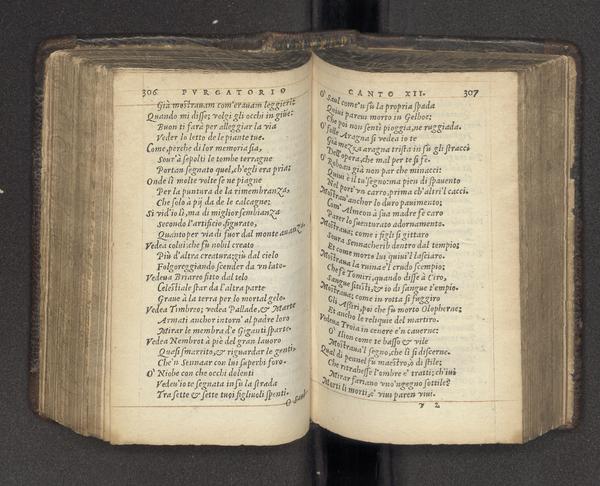 306 PVRGATORIO
Già mostrauam com'erauam leggieri:
Quando mi disse; volgi gli occhi in giùe:
Buon ti fara per alleggiar la via
Veder lo letto de le piante tue.
Come, perche di lor memoria sia,
Soura à sepolti le tombe terragne
Portan segnato quel, ch'egli era pria;
Onde lì molte volte se ne piagne
Per la puntura de la rimembranza,
Che solo à pij da de le calcagne;
Si vid'io lì, ma di miglior sembianza
Secondo l'artificio, figurato,
Quanto per via di fuor dal monte auanza.
Vedea colui; che fù nobil creato
Più d'altra creatura; giù dal cielo
Folgoreggiando scender da vn lato.
Vedeua Briareo fitto dal telo
Celestial star da l'altra parte
Graue à la terra per lo mortal gelo.
Vedea Timbreo; vedea Pallade, & Marte
Armati anchor intorn' al padre loro
Mirar le membra d'e Giganti sparte.
Vedea Nembrot à piè del gran lauoro
Quasi smarrito, & riguardar le genti,
Che'n Sennaar con lui superbi foro.
O' Niobe con che occhi dolenti
Vedeu'io te segnata in sù la strada
Tra sette & sette tuoi figliuoli spenti.
O Saul
CANTO XII. 307
O' Saul come'n sù la propria spada
Quiui pareui morto in Gelboe;
Che poi non sentì pioggia, ne ruggiada.
O' folle Aragna si vedea io te
Già mezza aragna trista in sù gli stracci
Dell'opera, che mal per te si fè.
O' Roboan già non par che minacci:
Quiui è il tu' segno: ma pien di spauento
Nel port' vn carro, prima ch'altri l'cacci.
Mostrau'anchor lo duro pauimento;
Com' Almeon à sua madre fe caro
Parer lo suenturato adornamento.
Mostraua; come i figli si gittaro
Soura Sennacherib dentro dal tempio;
Et come morto lui quiui'l lasciaro.
Mostraua la ruina e'l crudo scempio;
Che fè Tomiri, quando disse à Ciro,
Sangue sitisti, & io di sangue t'empio.
Mostraua; come in rotta si fuggiro
Gli Assiri, poi che fù morto Olopherne;
Et ancho le reliquie del martiro.
Vedeua Troia in cenere e'n cauerne:
O' Ilion come te basso & vile
Mostraua'l segno, che lì si discerne.
Qual di pennel fù maestro, ò di stile;
Che ritrahesse l'ombre e' tratti; ch'iui
Mirar fariano vno'ngegno sottile?
Morti li morti, e' viui paren viui.
V 2